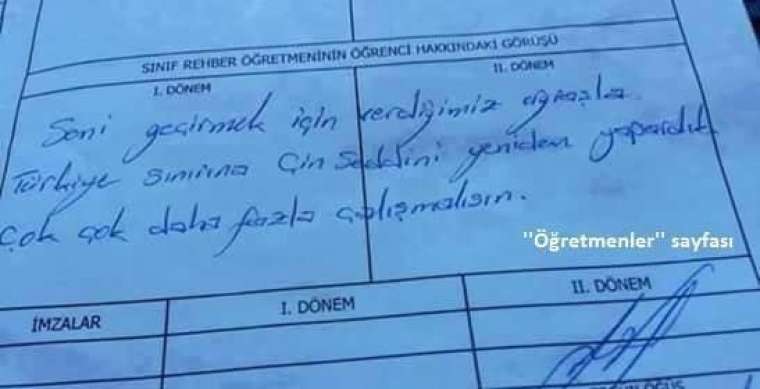 SINIF REHBER ÖĞRETMENİNİN ÖĞRENCİ HAKKINDAKİ GÖRÜŞÜ
I. DÖNEM
II. DÖNEM
Seni geçirmek için verdiğimiz uğraşla
Türkiye sınırına Çin Seddini yeniden yapardık
Çok çok daha fazla çalışmalısın.
"Öğretmenler" sayfası
İMZALAR
I. DÖNEM
II. DÖNEM